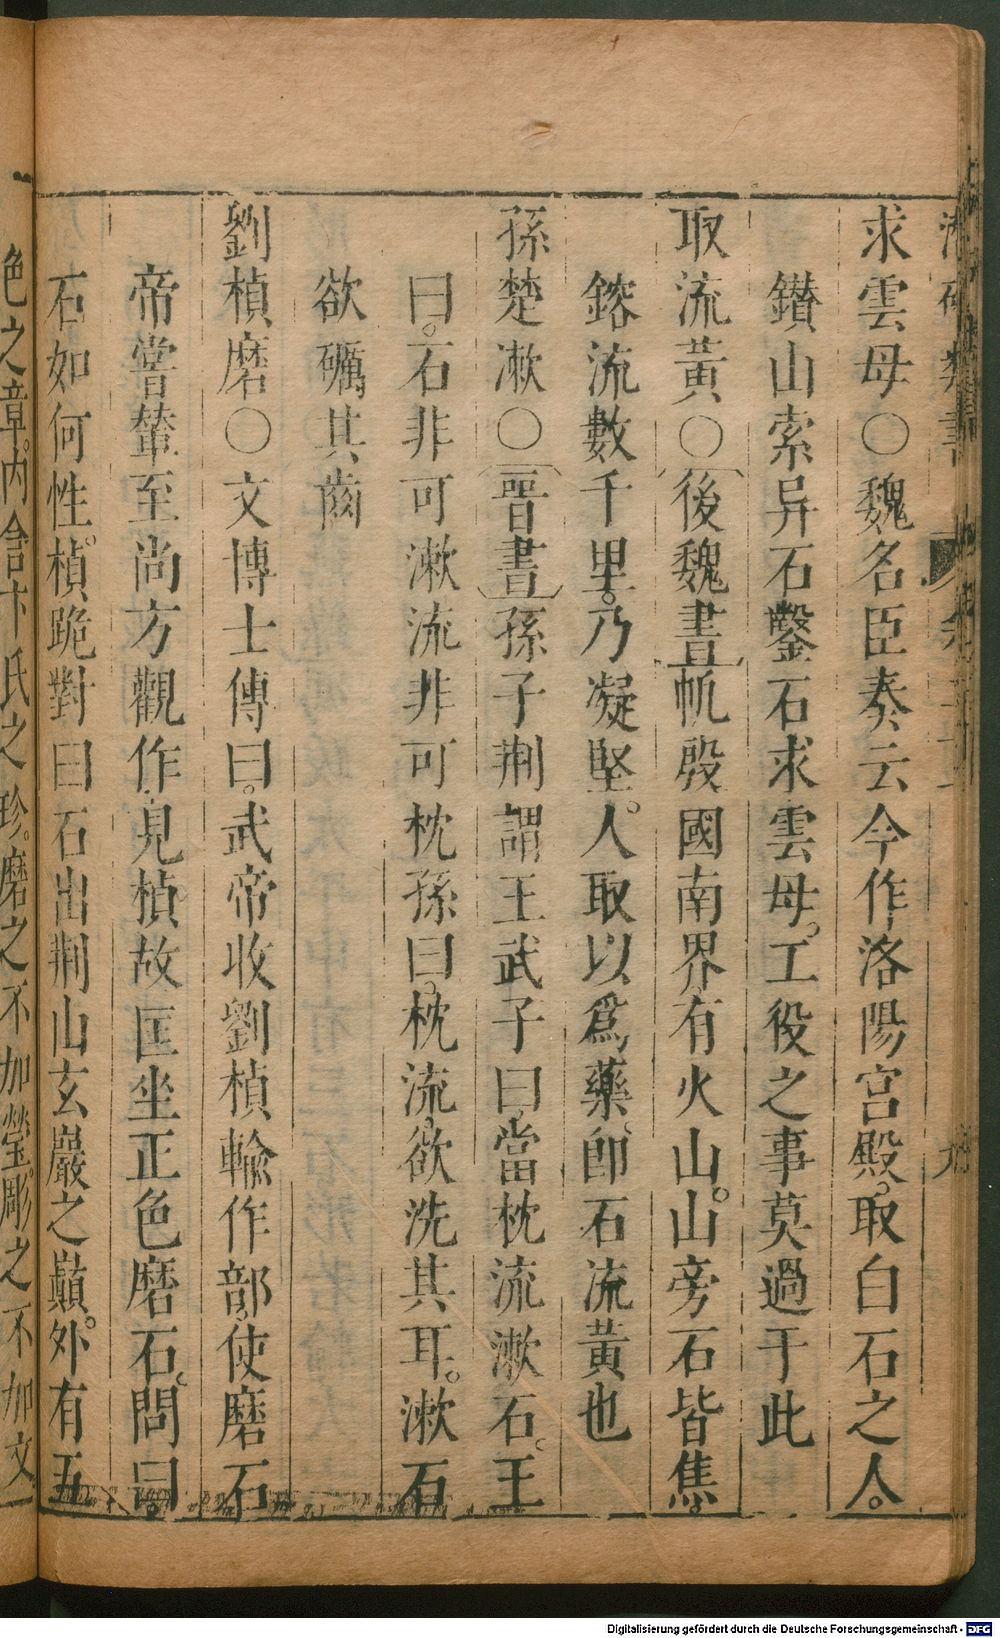 求雲母○魏名臣奏云今作洛陽宮殿。取白石之人。
鑽山索异石鑿石求雲母。工役之事莫過于此
取流黃○後魏書㡌殷國南界有火山。山旁石皆焦。
鎔流數千里。乃凝堅。人取以為藥。卽石流黃也
孫楚漱○晉書孫子荆謂王武子曰當枕流漱石。王
曰。石非可漱流非可枕孫曰。枕流欲洗其耳。漱石
欲礪其齒
劉楨磨○文博士傳曰。武帝收劉楨輸作部。使磨石
帝嘗輦至尚方觀作見楨故匡坐正色磨石。問曰。
石如何性。楨跪對曰石出荆山玄巖之巔。外有五
色之章。內含卞氏之珍。磨之不加瑩。彫之不加文
Digitalisierung gefördert durch die Deutsche Forschungsgemeinschaft - DFG